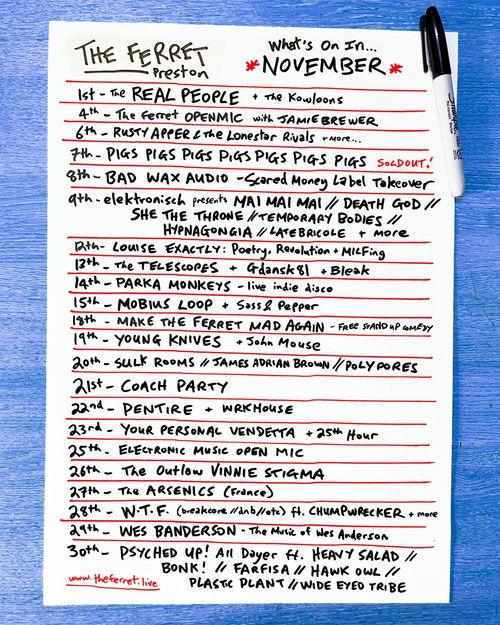 THE FERRET
Preston
What's On In...
*NOVEMBER*
1st - The REAL PEOPLE + The Kowloons
4th - The Ferret OPENMIC with JAMIE BREWER
6th - RUSTY APPER & The Lonestar Rivals + more...
7th - PIGS PIGS PIGS PIGS PIGS PIGS PIGS SOLDOUT!
8th - BAD WAX AUDIO - Scared Money Label Takeover
9th - elektronisch presents MAI MAI MAI // DEATH GOD //
SHE THE THRONE // TEMPORARY BODIES //
HYPNAGONGIA // LATEBRICOLE + more
12th - LOUISE EXACTLY: Poetry, Revolution + MILFing
13th - The TELESCOPES + Gdansk81 + Bleak
14th - PARKA MONKEYS - live indie disco
15th - MOBIUS LOOP + Sass & Pepper
18th - MAKE THE FERRET MAD AGAIN - FREE STAND UP COMEDY
19th - YOUNG KNIVES + John Mouse
20th - SULK ROOMS // JAMES ADRIAN BROWN // POLYPORES
21st - COACH PARTY
22nd - PENTIRE + WRKHOUSE
23rd - YOUR PERSONAL VENDETTA + 25th Hour
25th - ELECTRONIC MUSIC OPEN MIC
26th - The Outlaw VINNIE STIGMA
27th - The ARSENICS (France)
28th - W.T.F. (breakcore // dnb // etc) ft. CHUMPWRECKER + more
29th - WES BANDERSON - The Music of Wes Anderson
30th - PSYCHED UP! All Dayer ft. HEAVY SALAD //
BONK! // FARFISA // HAWK OWL //
PLASTIC PLANT // WIDE EYED TRIBE
www.theferret.live
Sharpie